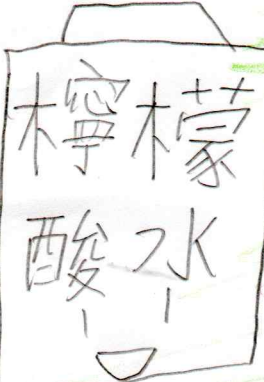 檸檬
酸水